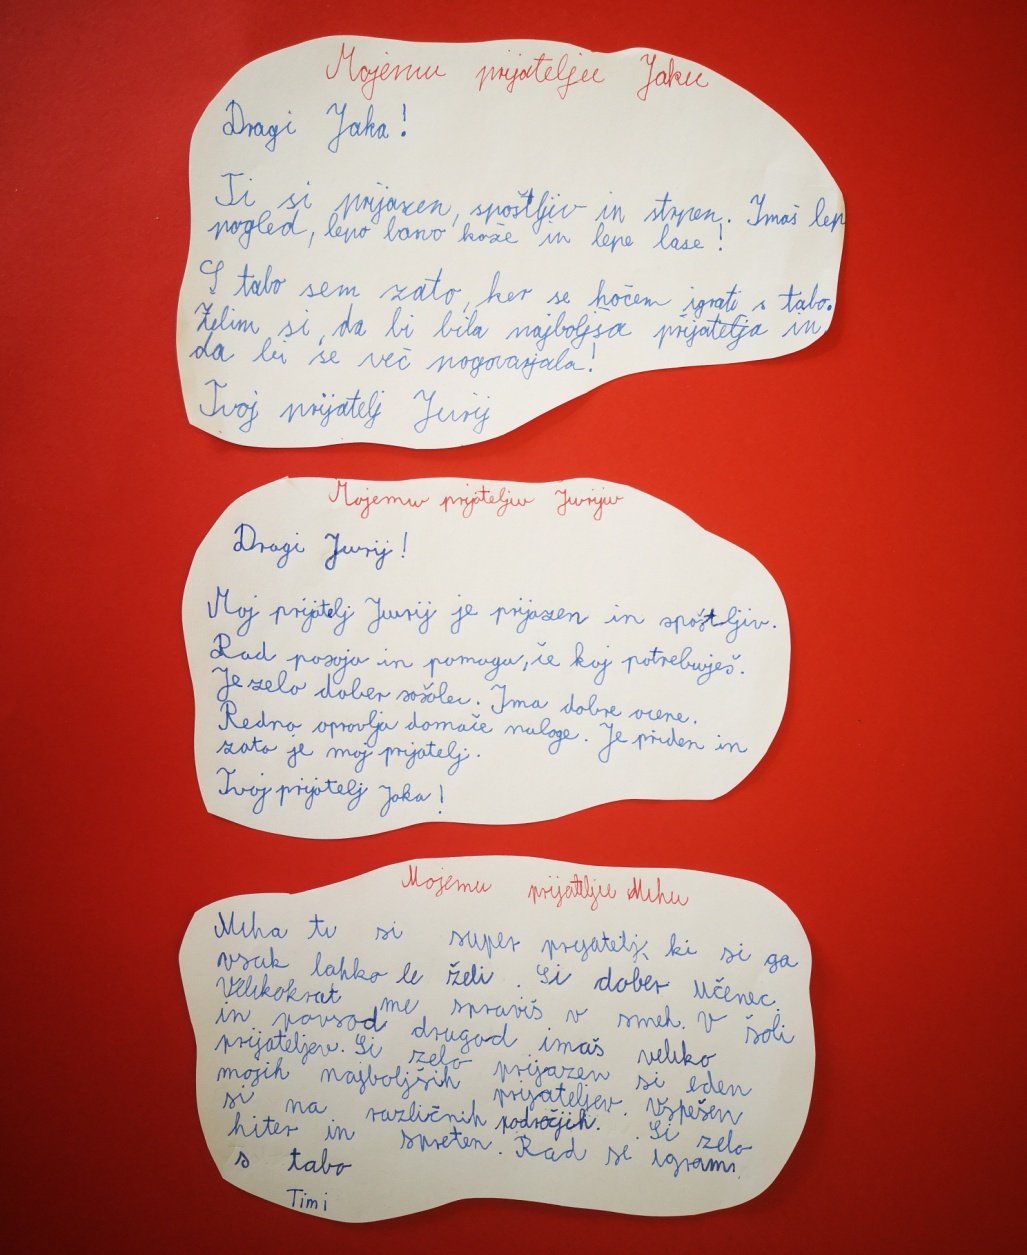 Mojemu prijatelju Jaku
Dragi Jaka!
Ti si prijazen, spoštljiv in strpen. Imaš lep
pogled, lepo barvo kože in lepe lase!
S tabo sem zato, ker se hočem igrati s tabo.
Želim si, da bi bila najboljša prijatelja in
da bi se več pogovarjala!
Tvoj prijatelj Jurij
Mojemu prijatelju Juriju
Dragi Jurij!
Moj prijatelj Jurij je prijazen in spoštljiv.
Rad posoja in pomaga, če kaj potrebuješ.
Je zelo dober sošolec. Ima dobre ocene.
Redno opravlja domače naloge. Je priden in
zato je moj prijatelj.
Tvoj prijatelj Jaka!
Mojemu prijatelju Mihu
Miha ti si super prijatelj, ki si ga
vsak lahko le želi. Si dober učenec.
Velikokrat me spraviš v smeh. V šoli
in povsod drugod imaš veliko
prijateljev. Si zelo prijazen si eden
mojih najboljših prijateljev. Uspešen
si na različnih področjih. Si zelo
hiter in spreten. Rad se igram
s tabo
Timi